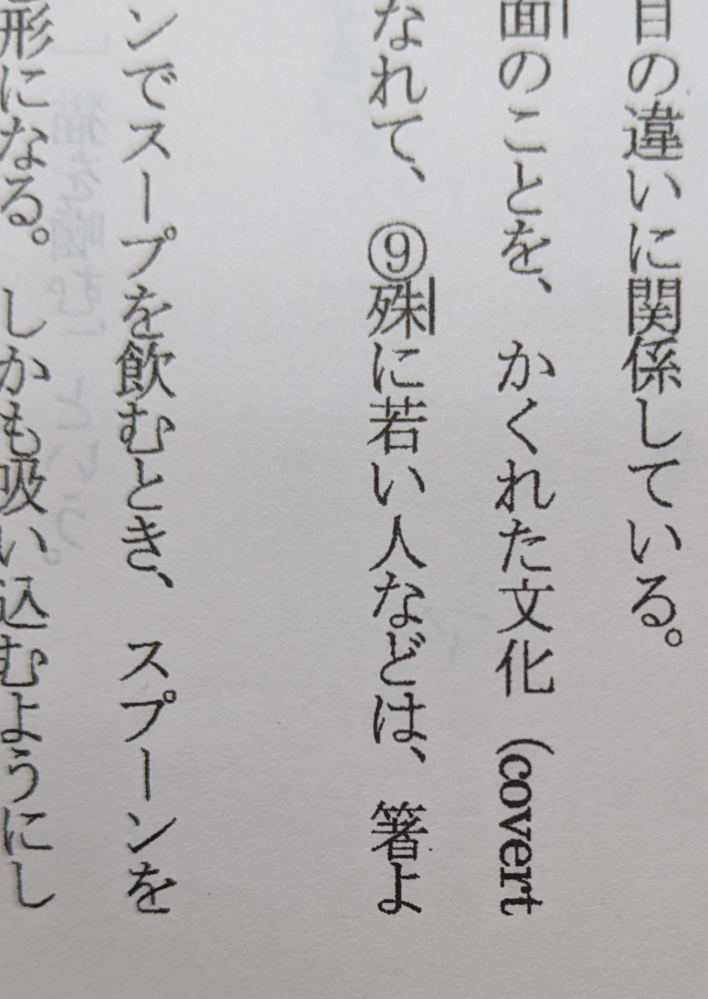 目の違いに関係している。
面のことを、かくれた文化（covert
なれて、⑨殊に若い人などは、箸よ
ンでスープを飲むとき、スプーンを
形になる。しかも吸い込むようにし